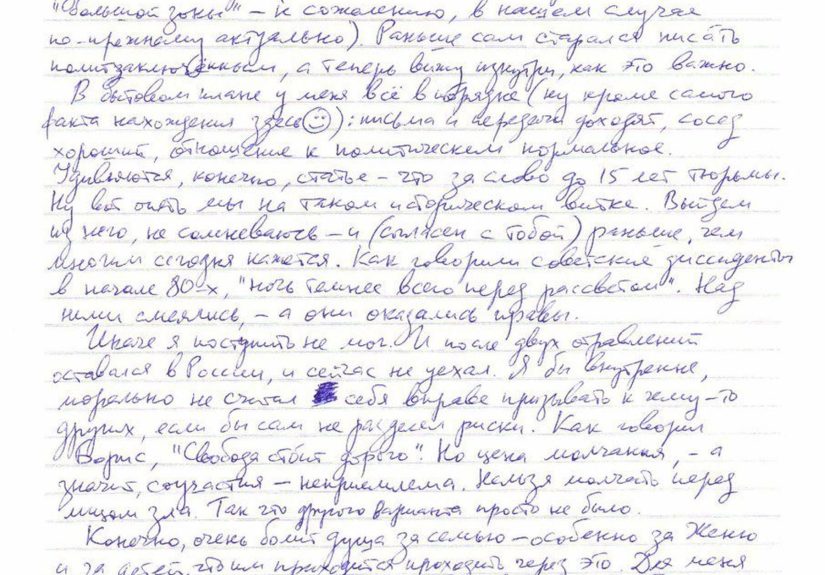 "большой зоны" – к сожалению, в нашем случае
по-прежнему актуально). Раньше сам старался писать
политзаключённым, а теперь вижу изнутри, как это важно.
В бытовом плане у меня всё в порядке (ну кроме самого
факта нахождения здесь ☺): письма и передачи доходят, сосед
хороший, отношение к политическим нормальное.
Удивляются, конечно, статье – что за слово до 15 лет тюрьмы.
Ну вот опять мы на таком историческом витке. Выйдем
из него, не сомневаюсь – и (согласен с тобой) раньше, чем
многим сегодня кажется. Как говорили советские диссиденты
в начале 80-х, "ночь темнее всего перед рассветом". Над
ними смеялись, – а они оказались правы.
Иначе я поступить не мог. И после двух отравлений
оставался в России, и сейчас не уехал. Я бы внутренне,
морально не считал себя вправе призывать к чему-то
других, если бы сам не разделял риски. Как говорил
Борис, "Свобода стоит дорого". Но цена молчания, – а
значит, соучастия – неприемлема. Нельзя молчать перед
лицом зла. Так что другого варианта просто не было.
Конечно, очень болит душа за семью – особенно за Женю
и за детей, что им приходится проходить через это. Для меня